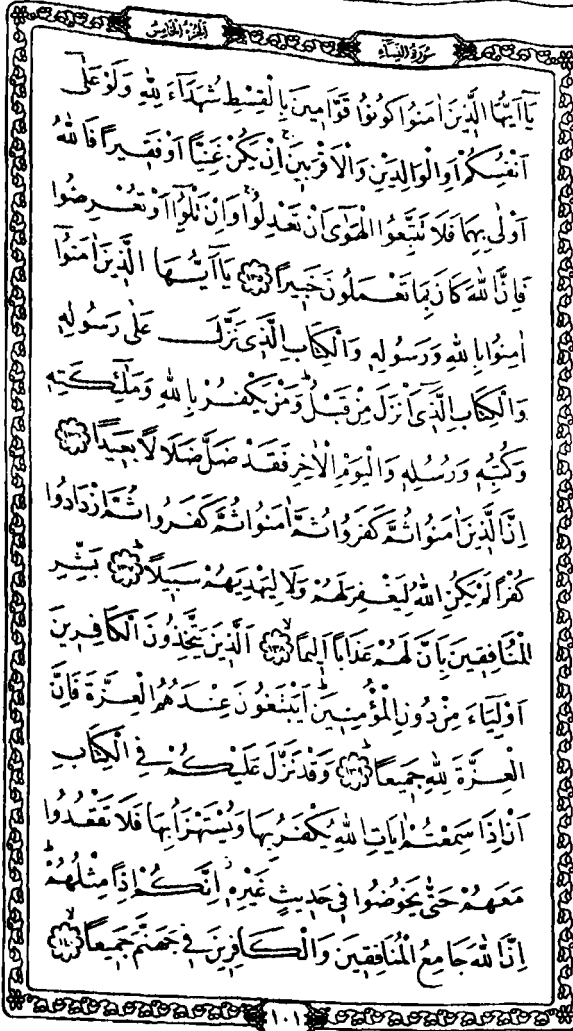 سورة النساء الجزء الخامس
يَٓا اَيُّهَا الَّذ۪ينَ اٰمَنُوا كُونُوا قَوَّام۪ينَ بِالْقِسْطِ شُهَدَٓاءَ لِلّٰهِ وَلَوْ عَلٰٓى
اَنْفُسِكُمْ اَوِ الْوَالِدَيْنِ وَالْاَقْرَب۪ينَۚ اِنْ يَكُنْ غَنِيًّا اَوْ فَق۪يرًا فَاللّٰهُ
اَوْلٰى بِهِمَا فَلَا تَتَّبِعُوا الْهَوٰٓى اَنْ تَعْدِلُواۚ وَاِنْ تَلْوُٓ۫ا اَوْ تُعْرِضُوا
فَاِنَّ اللّٰهَ كَانَ بِمَا تَعْمَلُونَ خَب۪يرًا ﴿١٣٥﴾ يَٓا اَيُّهَا الَّذ۪ينَ اٰمَنُٓوا
اٰمِنُوا بِاللّٰهِ وَرَسُولِه۪ وَالْكِتَابِ الَّذ۪ي نَزَّلَ عَلٰى رَسُولِه۪
وَالْكِتَابِ الَّذ۪ٓي اَنْزَلَ مِنْ قَبْلُۜ وَمَنْ يَكْفُرْ بِاللّٰهِ وَمَلٰٓئِكَتِه۪
وَكُتُبِه۪ وَرُسُلِه۪ وَالْيَوْمِ الْاٰخِرِ فَقَدْ ضَلَّ ضَلَالًا بَع۪يدًا ﴿١٣٦﴾
اِنَّ الَّذ۪ينَ اٰمَنُوا ثُمَّ كَفَرُوا ثُمَّ اٰمَنُوا ثُمَّ كَفَرُوا ثُمَّ ازْدَادُوا
كُفْرًا لَمْ يَكُنِ اللّٰهُ لِيَغْفِرَ لَهُمْ وَلَا لِيَهْدِيَهُمْ سَب۪يلًاۜ ﴿١٣٧﴾ بَشِّرِ
الْمُنَافِق۪ينَ بِاَنَّ لَهُمْ عَذَابًا اَل۪يمًاۙ ﴿١٣٨﴾ اَلَّذ۪ينَ يَتَّخِذُونَ الْكَافِر۪ينَ
اَوْلِيَٓاءَ مِنْ دُونِ الْمُؤْمِن۪ينَۜ اَيَبْتَغُونَ عِنْدَهُمُ الْعِزَّةَ فَاِنَّ
الْعِزَّةَ لِلّٰهِ جَم۪يعًاۜ ﴿١٣٩﴾ وَقَدْ نَزَّلَ عَلَيْكُمْ فِي الْكِتَابِ
اَنْ اِذَا سَمِعْتُمْ اٰيَاتِ اللّٰهِ يُكْفَرُ بِهَا وَيُسْتَهْزَاُ بِهَا فَلَا تَقْعُدُوا
مَعَهُمْ حَتّٰى يَخُوضُوا ف۪ي حَد۪يثٍ غَيْرِه۪ۘ اِنَّكُمْ اِذًا مِثْلُهُمْۜ
اِنَّ اللّٰهَ جَامِعُ الْمُنَافِق۪ينَ وَالْكَافِر۪ينَ ف۪ي جَهَنَّمَ جَم۪يعًاۙ ﴿١٤٠﴾
١٠١